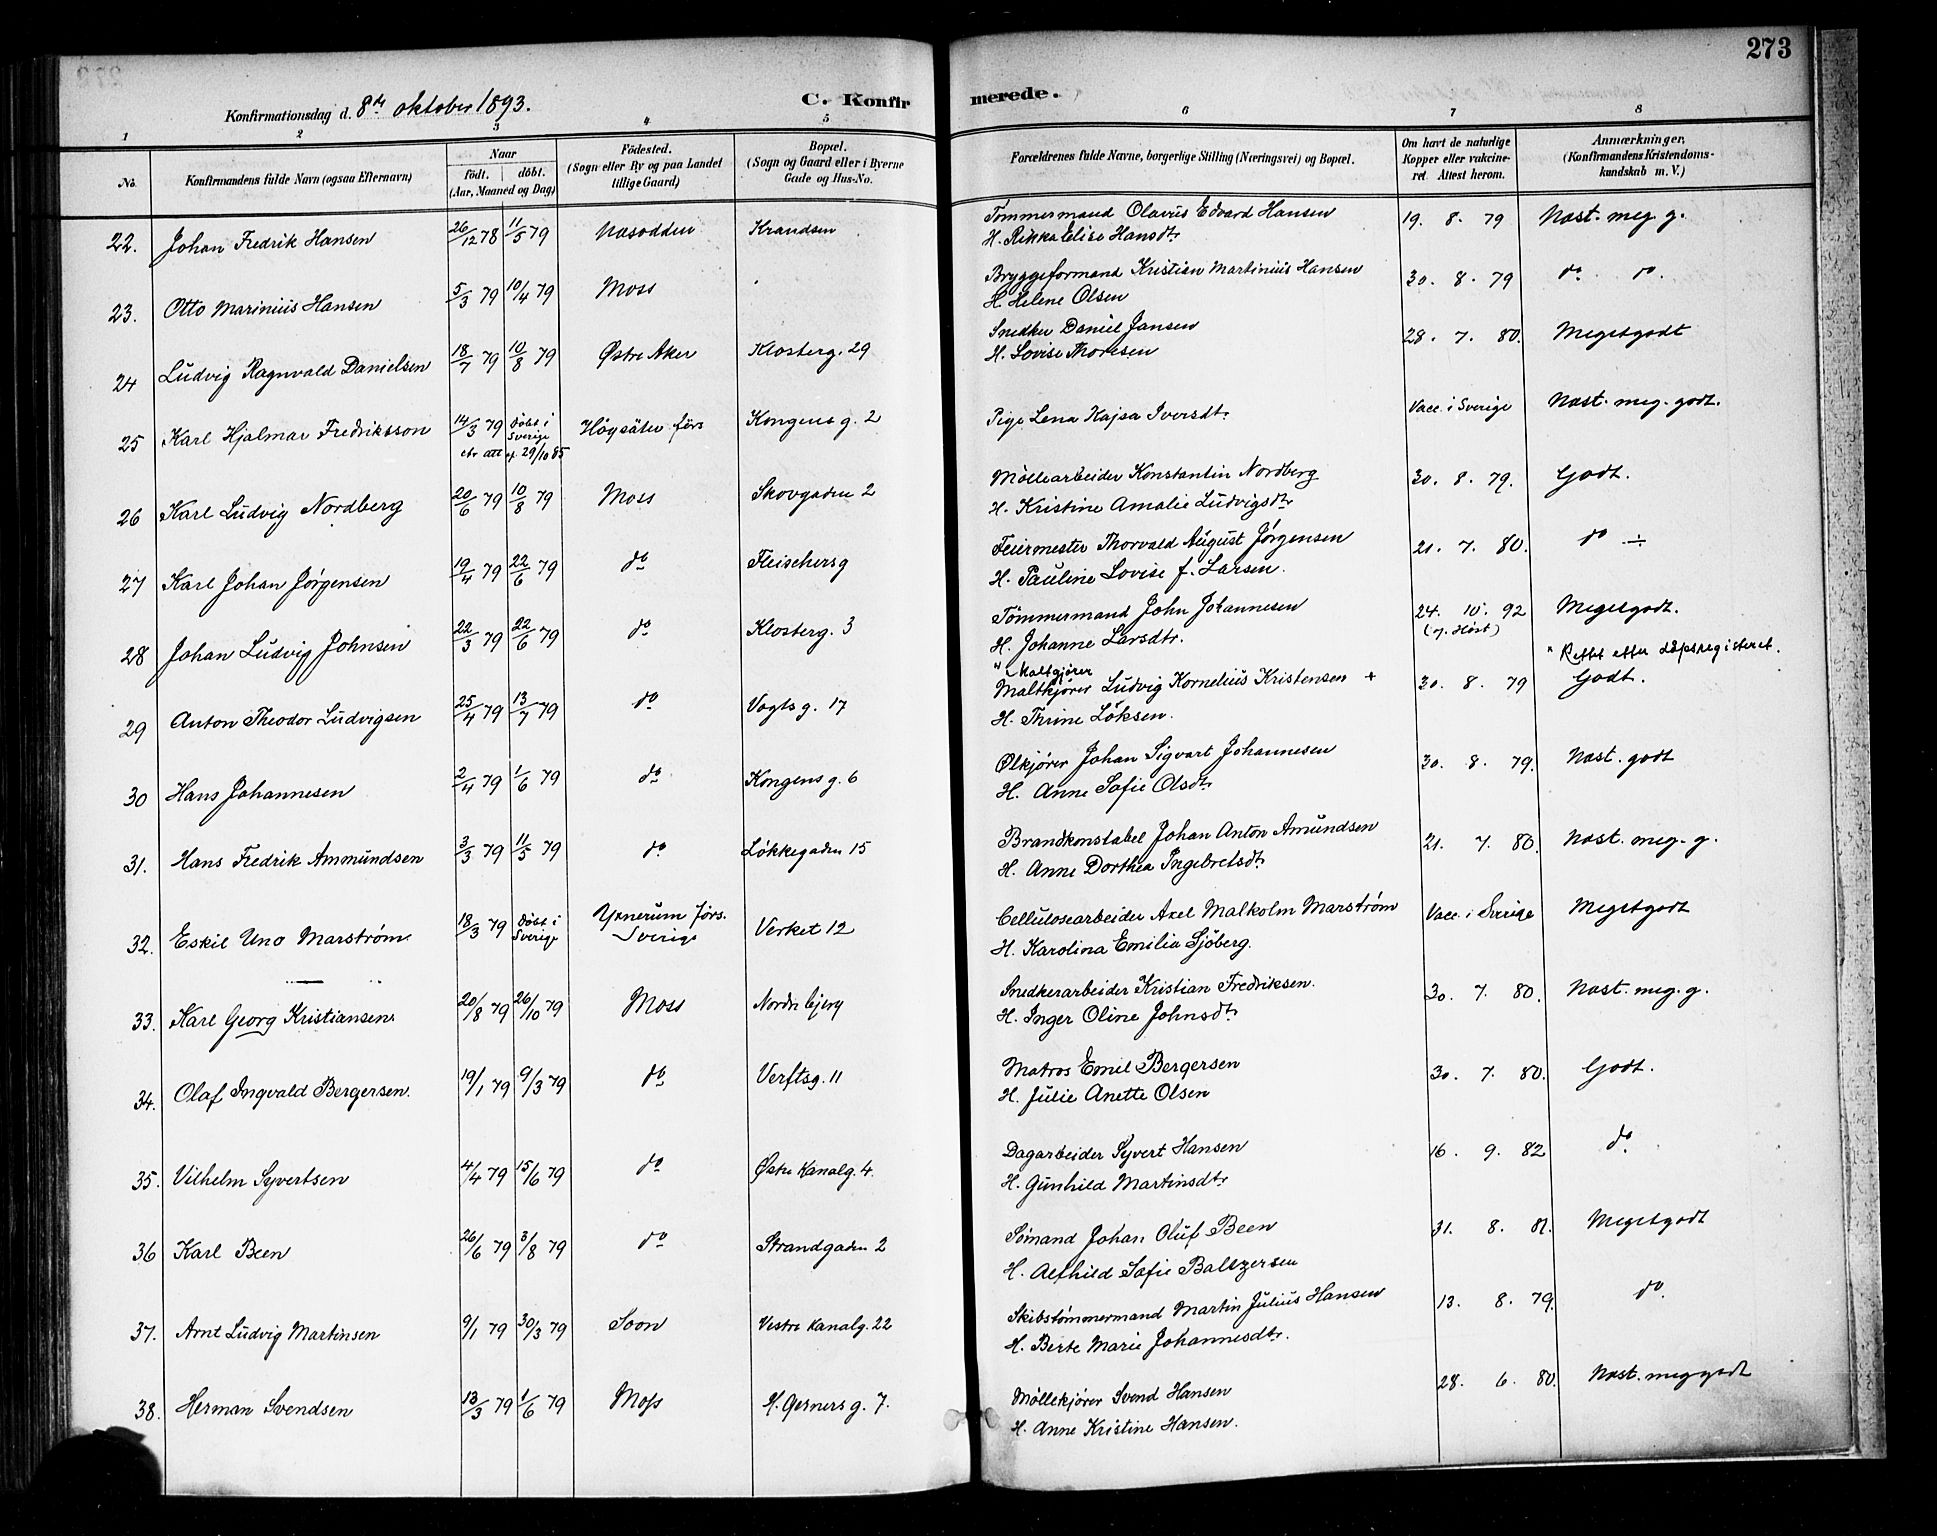 273
Konfirmationsdag d. 8de oktober 1893.
C. Konfirmerede.
1 2 3 4 5 6 7 8
No.
Konfirmandens fulde Navn (ogsaa Efternavn)
Naar
födt. döbt.
(Aar, Maaned og Dag)
Födested.
(Sogn eller By og paa Landet
tillige Gaard)
Bopæl.
(Sogn og Gaard eller i Byerne
Gade og Hus-No.
Forældrenes fulde Navne, borgerlige Stilling (Næringsvei) og Bopæl.
Om havt de naturlige
Kopper eller vakcine-
ret Attest herom.
Anmærkninger,
(Konfirmandens Kristendoms-
kundskab m. V.)
22. Johan Fredrik Hansen 26/12 78 11/5 79 Næsodden Krandsen Tømmermand Olavus Edvard Hansen 19. 8. 79 Næst. meg. g.
H. Rikka Elise Hansdtr
23. Otto Marinius Hansen 5/3 79 10/4 79 Moss Bryggeformand Kristian Martinius Hansen 30. 8. 79 do do.
H. Helene Olsen
24 Ludvig Ragnvald Danielsen 18/7 79 10/8 79 Østre Aker Klosterg. 29 Snedker Daniel Jansen 28. 7. 80. Megetgodt
H. Lovise Thoresen
25 Karl Hjalmar Fredriksson 14/3 79 døbt i Sverige Högsäter förs Kongens g. 2 Pige Lena Kajsa Iversdtr Vacc. i Sverige Næst. meg. godt.
etr att af 29/10 85
26 Karl Ludvig Nordberg 20/6 79 10/8 79 Moss Skovgaden 2 Møllearbeider Konstantin Nordberg 30. 8. 79. Godt.
H. Kristine Amalie Ludvigsdtr
27 Karl Johan Jørgensen 19/4 79 22/6 79 do Fleischersg Feiermester Thorvald August Jørgensen 21. 7. 80. do ÷
H. Pauline Lovise f. Larsen.
28 Johan Ludvig Johnsen 22/3 79 22/6 79 do Klosterg. 3 Tømmermand John Johannesen 24. 10. 92 Megetgodt.
H. Johanne Larsdtr. (v. Høst)
" Maltgjører " Rettet efter dåpsregisteret.
29 Anton Theodor Ludvigsen 25/4 79 13/7 79 do Vogts g. 17 Maltkjører Ludvig Kornelius Kristensen + 30. 8. 79 Godt.
H. Thrine Löksen.
30 Hans Johannesen 2/4 79 1/6 79 do Kongens g. 6 Ølkjører Johan Sigvart Johannesen 30. 8. 79. Næst. godt
H. Anne Sofie Olsdtr
31. Hans Fredrik Ammundsen 3/3 79 11/5 79 do Løkkegaden 15 Brandkonstabel Johan Anton Amundsen 21. 7. 80. Næst. meg. g.
H. Anne Dorthea Ingebretsdtr
32. Eskil Uno Marstrøm 18/3 79 døbt i Sverige Yxnerum förs. Sverige Verket 12 Cellulosearbeider Axel Malkolm Marstrøm Vacc. i Sverige Megetgodt
H. Karolina Emilia Sjöberg.
33. Karl Georg Kristiansen 20/8 79 26/10 79 Moss Nordre bjerg Snedkerarbeider Kristian Fredriksen. 30. 7. 80. Næst. meg. g.
H. Inger Oline Johnsdtr
34. Olaf Ingvald Bergersen. 19/1 79 9/3 79 do Verftsg. 11 Matros Emil Bergersen 30. 7. 80. Godt.
H. Julie Anette Olsen
35. Vilhelm Syvertsen 4/4 79 15/6 79 do Østre Kanalg. 4. Dagarbeider Syvert Hansen 16. 9. 82 do
H. Gunhild Martinsdtr
36 Karl Been 26/6 79 3/8 79 do Strandgaden 2 Sømand Johan Oluf Been 31. 8. 81. Megetgodt
H. Alfhild Sofie Baltzersen
37. Arnt Ludvig Martinsen 9/1 79 30/3 79 Soon Vestre Kanalg. 22 Skibstømmermand Martin Julius Hansen 13. 8. 79. do.
H. Berte Marie Johannesdtr.
38. Herman Svendsen 13/3 79 1/6 79 Moss H. Gerners g. 7. Møllekjører Svend Hansen 28. 6. 80. Næst. meg godt
H. Anne Kristine Hansen.